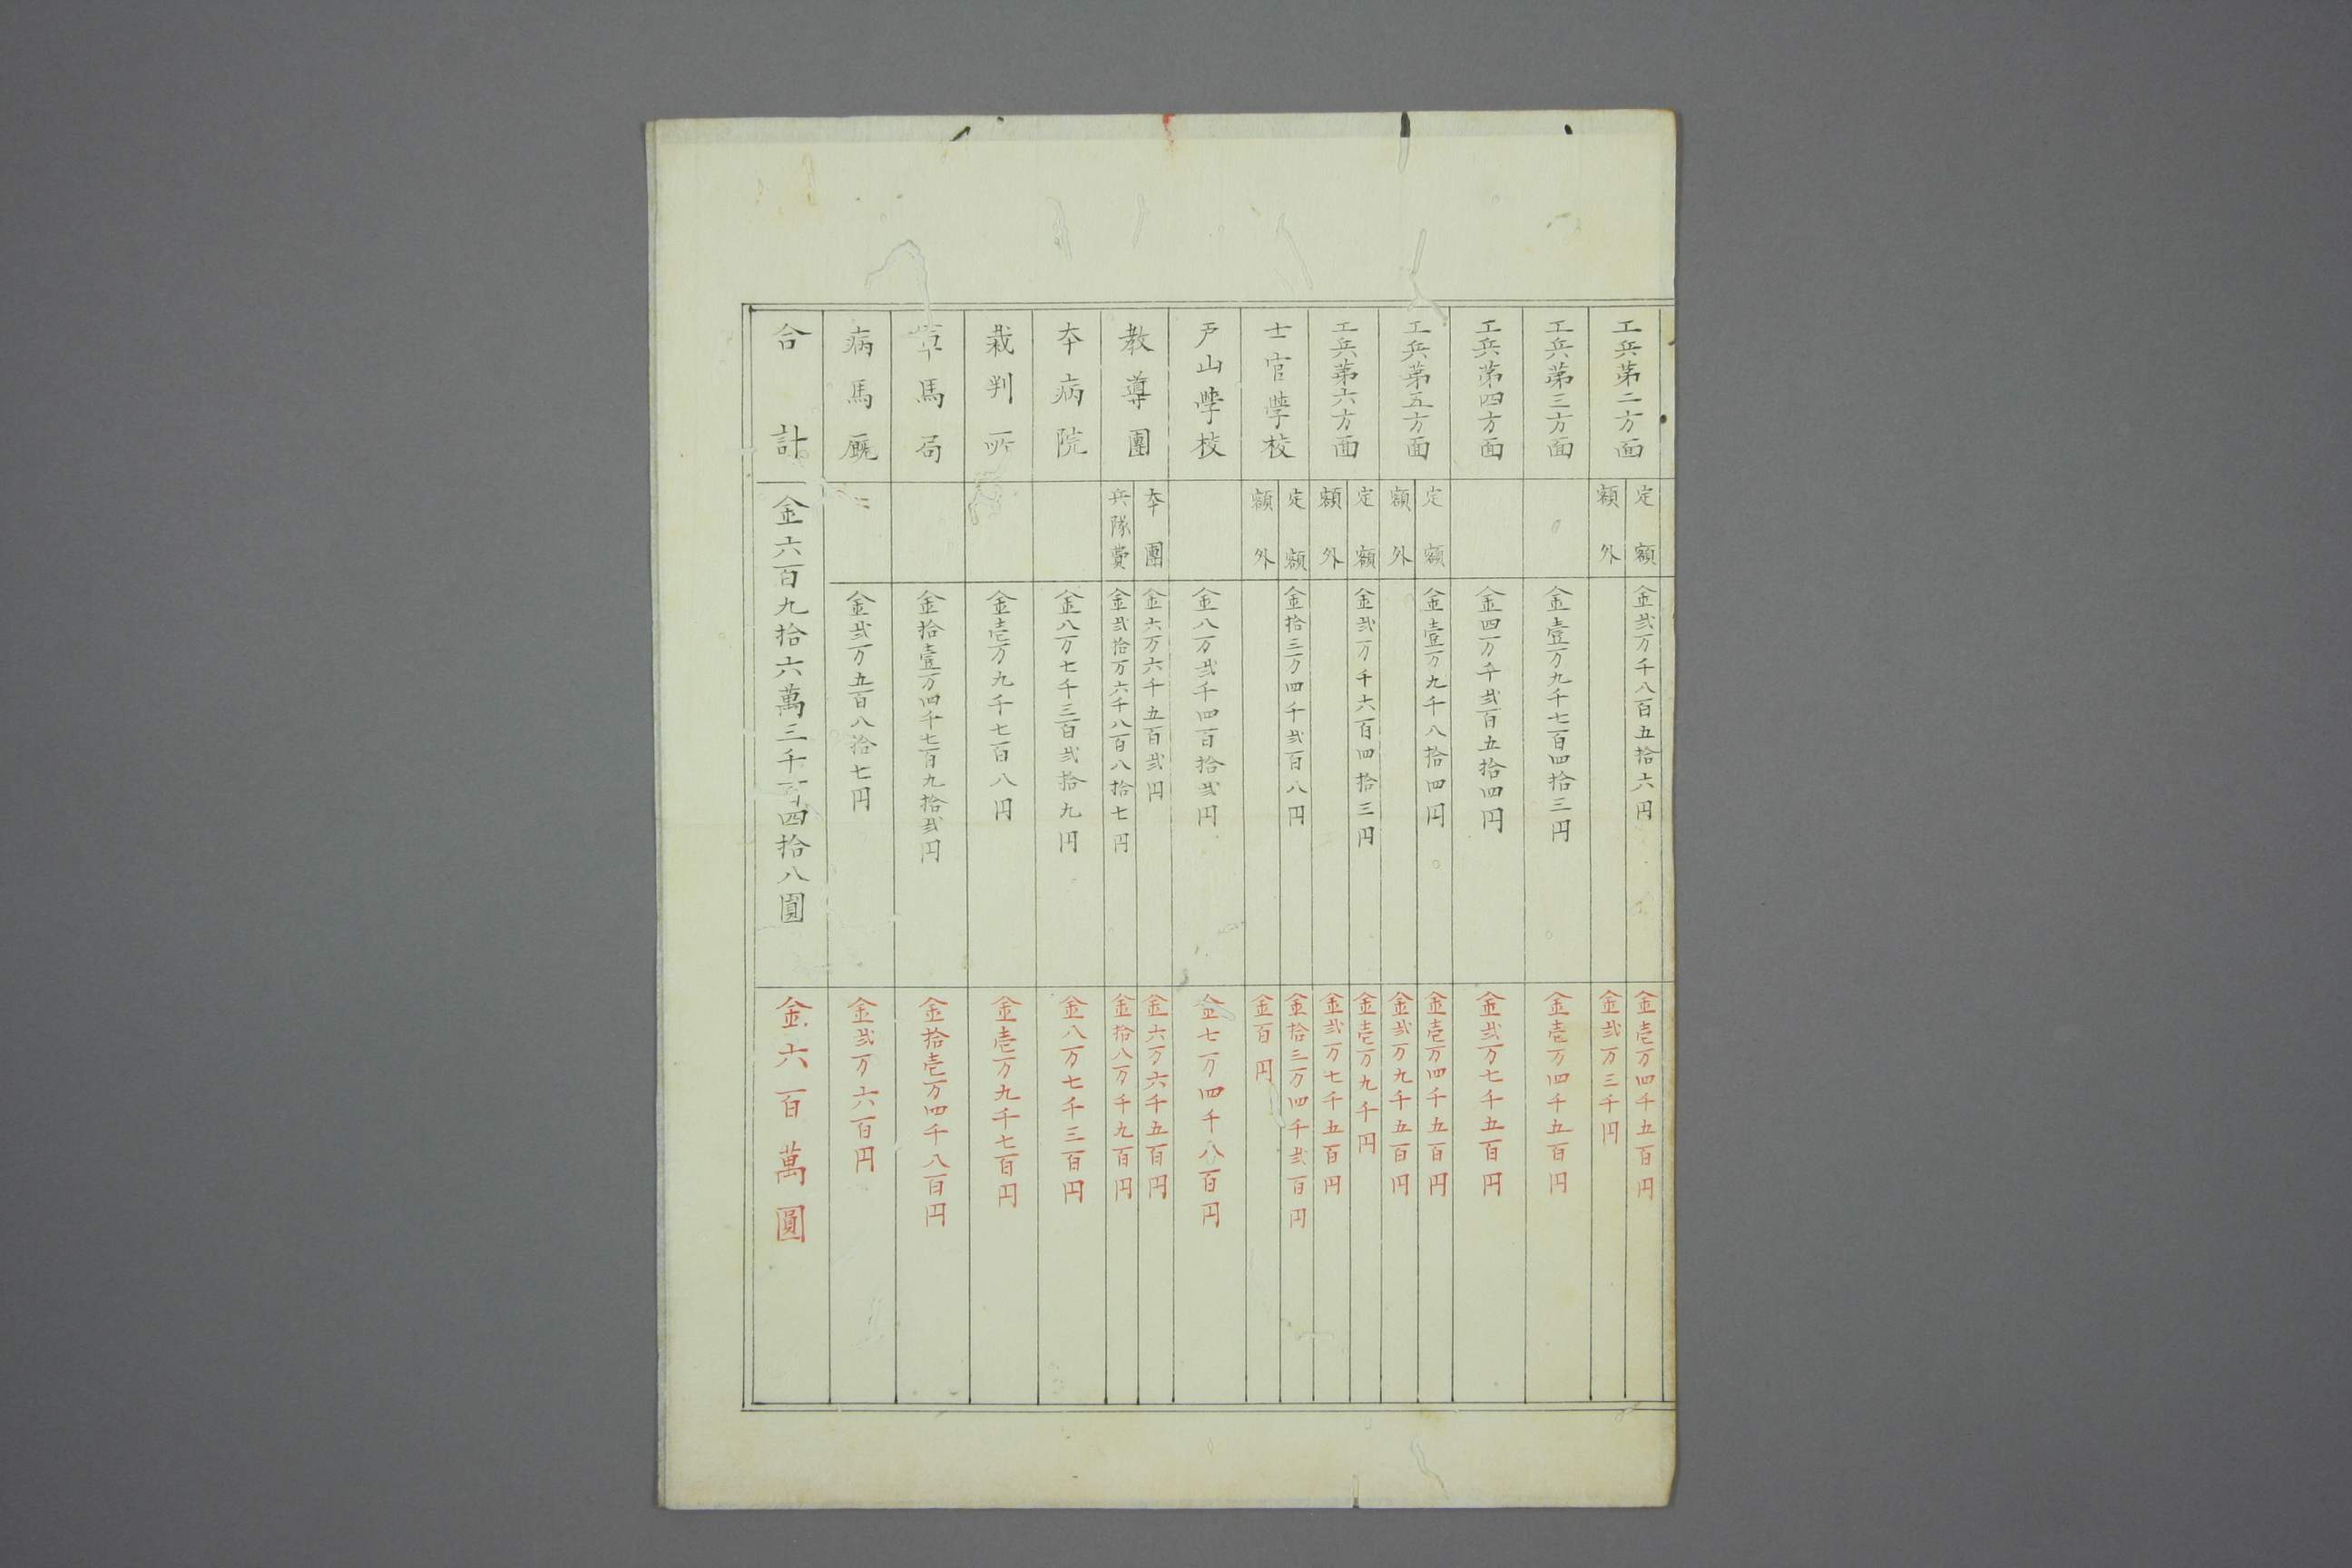 工兵第二方面
定額
金弐万千八百五拾六円
金壱万四千五百円
額外
金弐万三千円
工兵第三方面
金壹万九千七百四拾三円
金壱万四千五百円
工兵第四方面
金四万千弐百五拾四円
金弐万七千五百円
工兵第五方面
定額
金壹万九千八拾四円
金壱万四千五百円
額外
金弐万九千五百円
工兵第六方面
定額
金弐万千六百四拾三円
金壱万九千円
額外
金弐万七千五百円
士官學校
定額
金拾三万四千弐百八円
金拾三万四千弐百円
額外
金百円
戸山學校
金八万弐千四百拾弐円
金七万四千八百円
教導團
本團
金六万六千五百弐円
金六万六千五百円
兵隊費
金弐拾万六千八百八拾七円
金拾八万千九百円
本病院
金八万七千三百弐拾九円
金八万七千三百円
裁判所
金壱万九千七百八円
金壱万九千七百円
馬局
金拾壹万四千七百九拾弐円
金拾壱万四千八百円
病馬厩
金弐万五百八拾七円
金弐万六百円
合計
金六百九拾六萬三千百四拾八圓
金六百萬圓